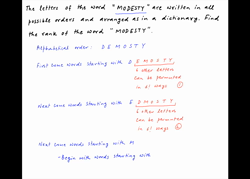 The letters of the word "MODESTY" are written in all
possible orders and arranged as in a dictionary. Find
the rank of the word "MODESTY".
Alphabetical order: D E M O S T Y
First come words starting with D E M O S T Y
6 other letters
can be permuted
in 6! ways ①
Next come words starting with E D M O S T Y
6 other letters
can be permuted
in 6! ways ②
Next come words starting with M
- Begin with words starting with